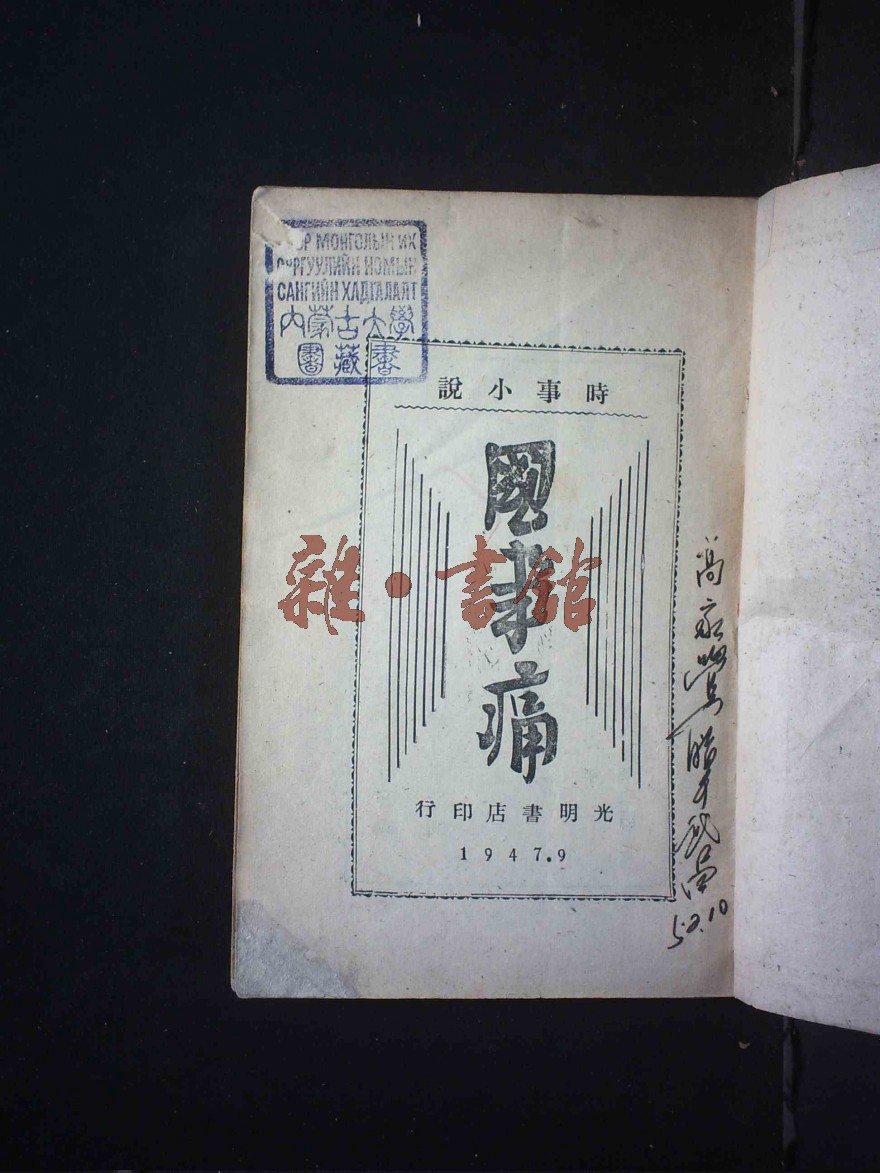 ӨВӨР МОНГОЛЫН ИХ
СУРГУУЛИЙН НОМЫН
САНГИЙН ХАДГАЛАЛТ
內蒙古大學
圖藏書
時事小說
國事痛
雜·書館
光明書店印行
1947.9
高
52.10